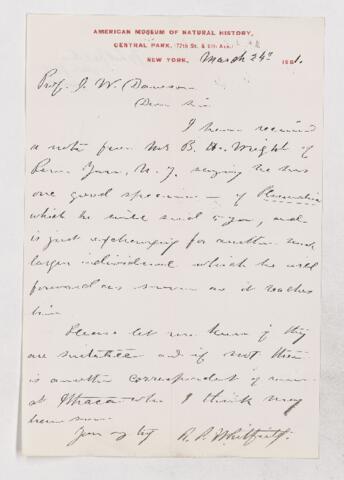 AMERICAN MUSEUM OF NATURAL HISTORY,
CENTRAL PARK, (77th St. & 8th Ave.)
NEW YORK, March 24th 1881.
Prof. J. W. Dawson
Dear Sir
I have received
a note from Mr B. H. Wright of
Penn Yan, N.Y. saying he has
one good specimen of
which he will send to you, and
is just exchanging for another much
larger individual which he will
forward as soon as it reaches
him.
Please let me know if they
are suitable and if not there
is another correspondent of mine
at Ithaca who I think may
have some.
Yours truly R. P. Whitfield.